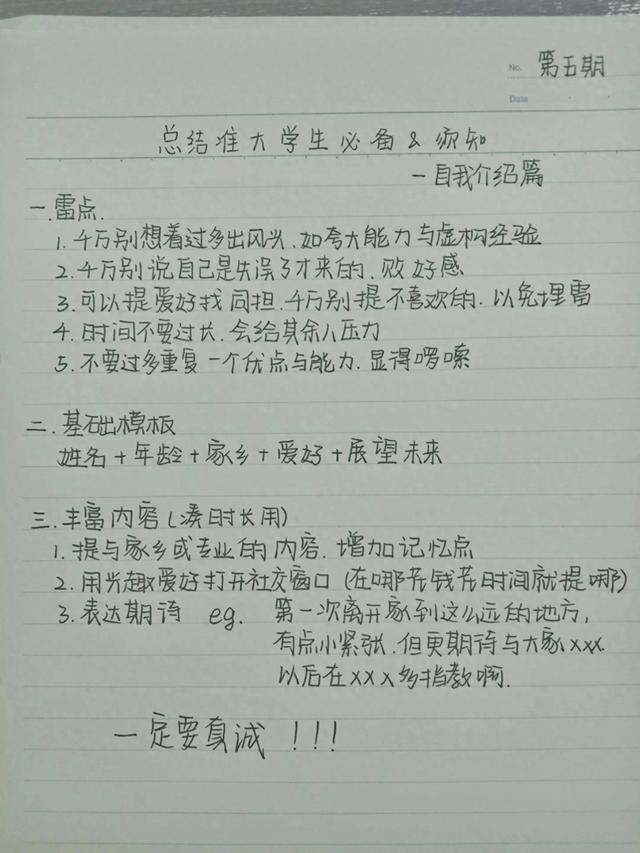 No. 第五期
Date
总结准大学生必备 & 须知
—自我介绍篇
一.雷点.
1.千万别想着过多出风头.如夸大能力与虚构经验
2.千万别说自己是失误了才来的.败好感
3.可以提爱好找同担.千万别提不喜欢的.以免埋雷
4.时间不要过长.会给其余人压力
5.不要过多重复一个优点与能力.显得啰嗦
二.基础模板
姓名+年龄+家乡+爱好+展望未来
三.丰富内容(凑时长用)
1.提与家乡或专业的内容.增加记忆点
2.用兴趣爱好打开社交窗口(在哪花钱花时间就提哪)
3.表达期待 eg. 第一次离开家到这么远的地方,
有点小紧张.但更期待与大家xxx.
以后在xxx多指教啊.
一定要真诚!!!